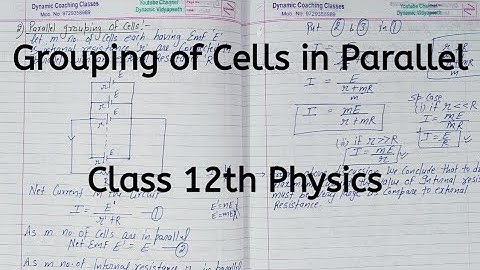 Dynamic Coaching Classes
Mob. No. 9729358989
Youtube Channel
Dynamic Vidyapeeth
Dynamic Coaching Classes
Mob. No. 9729358989
Youtube Channel
Dynamic Vidyapeeth
Grouping of Cells in Parallel
Class 12th Physics
2) Parallel grouping of Cells:-
let m no. of cells each having Emf 'E'
E
E
E
Net Current in the Circuit
I = E' / r'+R — ①
As m no. of Cells are in parallel
Net Emf E' = E — ②
As m no. of internal resistance in parallel
Put ② & ③ in ①
I = E / r/m + R
I = E / r+mR / m
I = mE / r+mR
Sp Case
(i) if r << R
I = mE / mR
I = E / R
(ii) if r >> R
I = mE / r
we Conclude that to
value of Internal
must be very as Compare to external
Resistance.